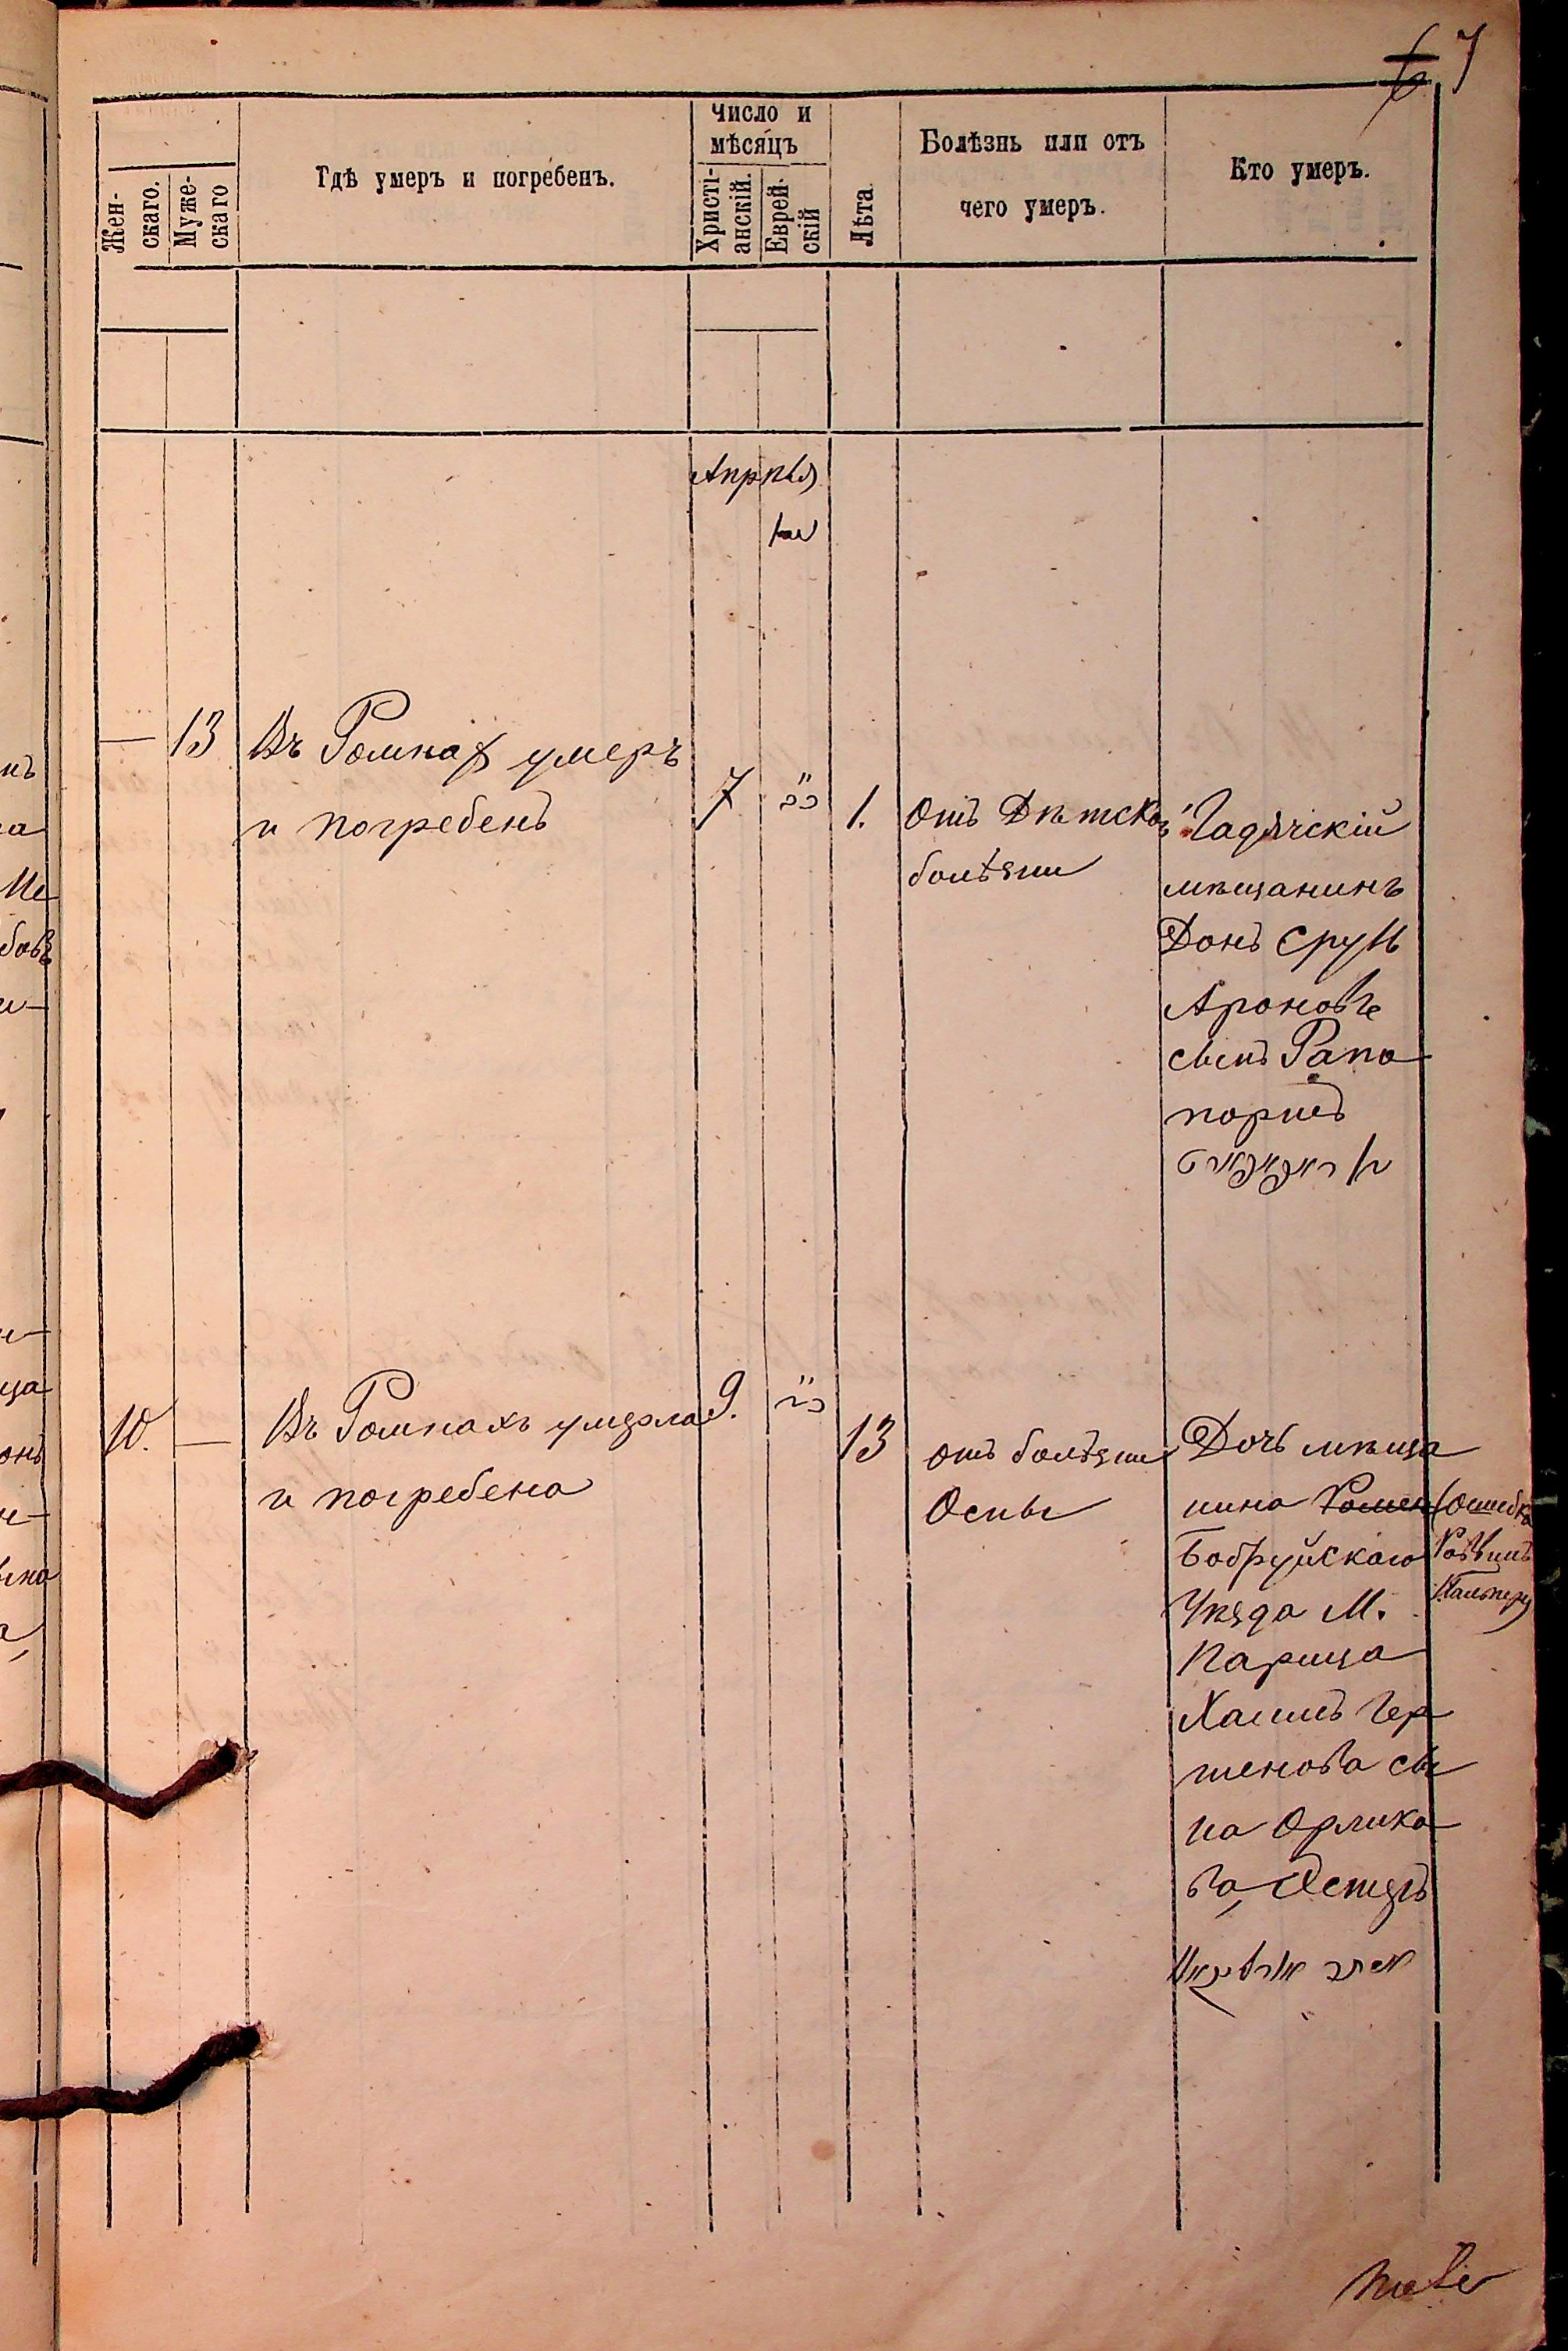 7
Жен-
скаго.
Муже-
скаго
Гдѣ умеръ и погребенъ.
Число и
мѣсяцъ
Христі-
анскій.
Еврей-
скій
Лѣта
Болѣзнь или отъ
чего умеръ.
Кто умеръ.
Апрѣль
— 13
Въ Ромнах умеръ
и погребенъ
7
1.
Отъ Дѣтской
болѣзни
Гадячскій
мѣщанинъ
Донъ Сруль
Ароновъ
сынъ Рапо
портъ
10. —
Въ Ромнахъ умерла
и погребена
9.
13
отъ болѣзни
Оспы
Дочь мѣща
нина Ромен
Бобруйскаго
Уѣзда М.
Парица
Хаимъ Гер
шенова сы
на Орлико
ва, Эстеръ
(Ошибка
Раввинъ